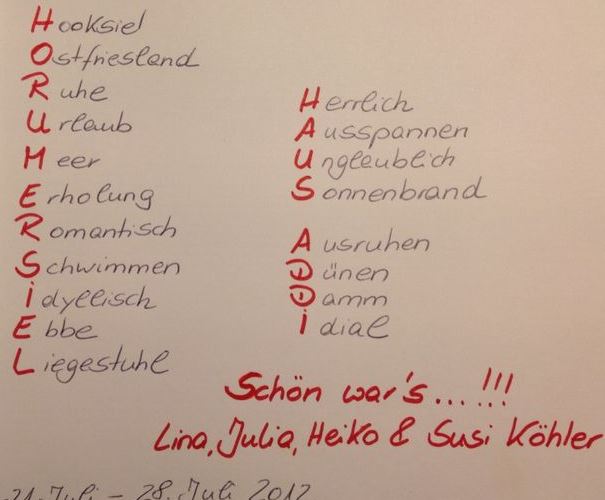 Hooksiel
Ostfriesland
Ruhe
Urlaub
Meer
Erholung
Romantisch
Schwimmen
idyllisch
Ebbe
Liegestuhl
Herrlich
Ausspannen
Unglaublich
Sonnenbrand
Ausruhen
Dünen
Damm
idial
Schön war's...!!!
Lina, Julia, Heiko & Susi Köhler
21. Juli - 28. Juli 2012